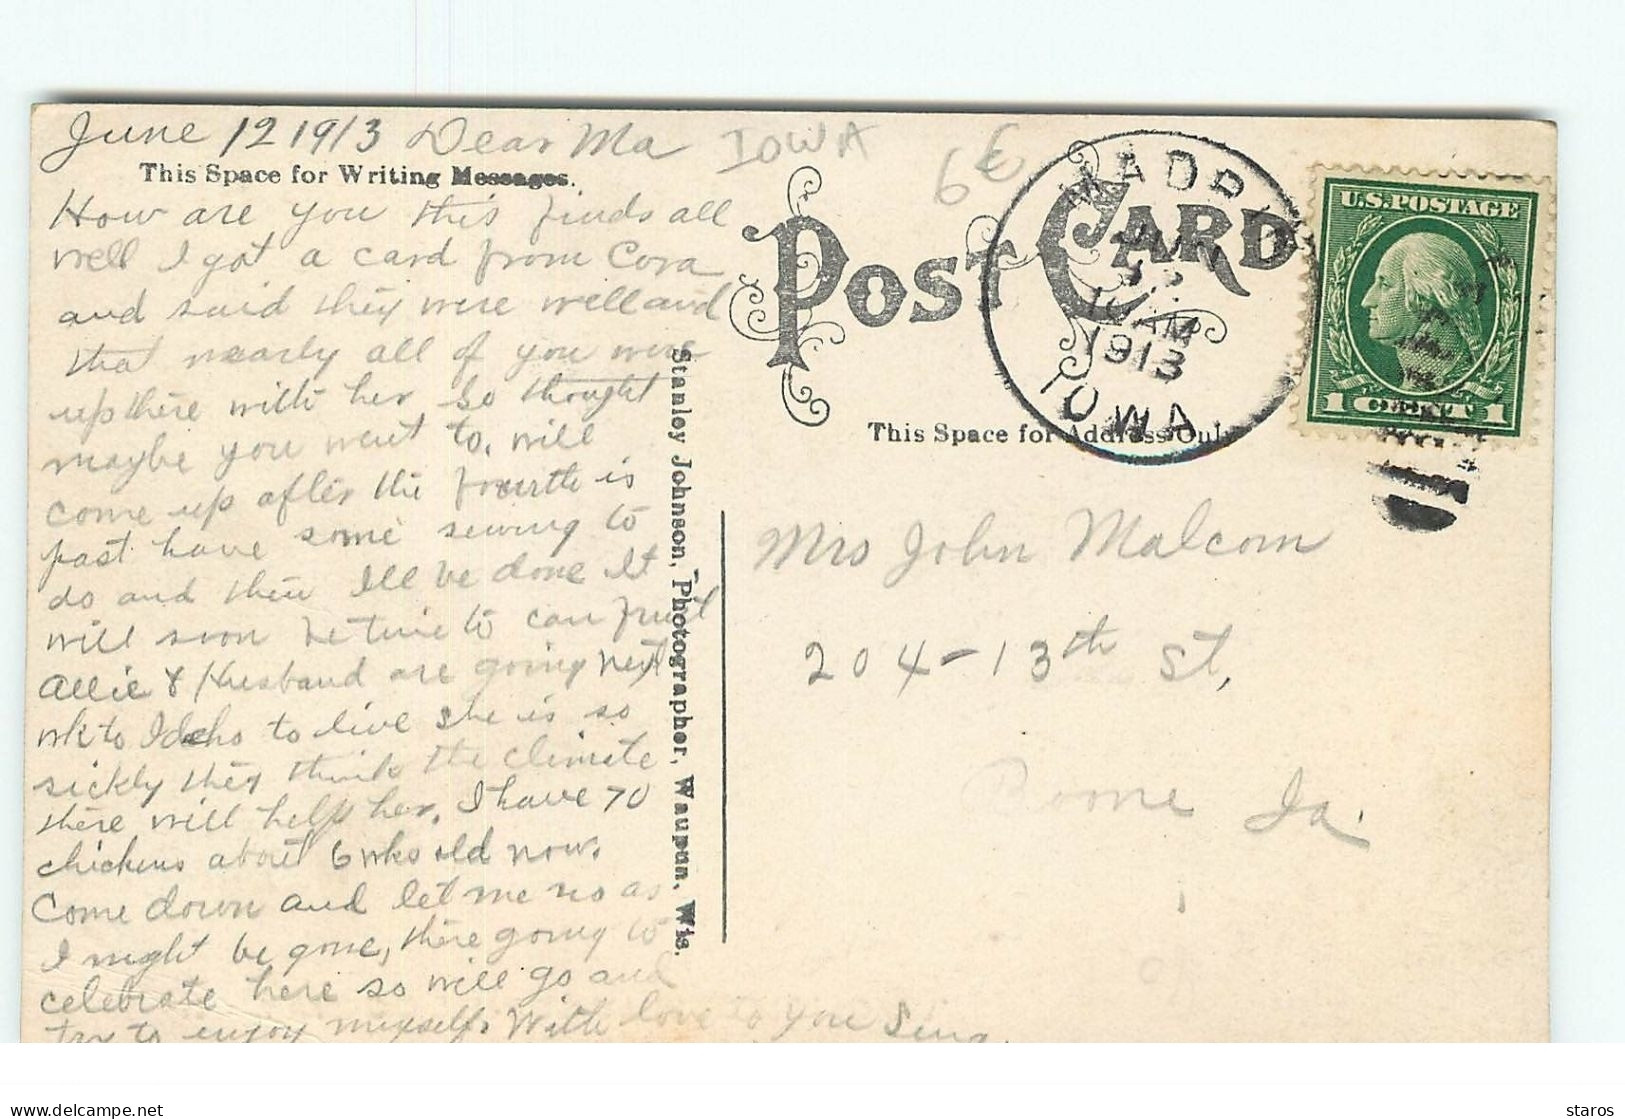 June 12 1913 Dear Ma
IOWA
6€
This Space for Writing Messages.
How are you this finds all
well I got a card from Cora
and said they were well and
that nearly all of you were
up there with her So thought
maybe you went to. will
come up after the fourth is
past have some sewing to
do and then Ill be done It
will soon be time to can fruit
Allie & Husband are going next
wk to Idaho to live She is so
sickly they think the climate
there will help her. I have 70
chickens about 6 wks old now.
Come down and let me no as
I might be gone, there going to
celebrate here so will go and
try to enjoy myself. With love to you
Stanley Johnson, Photographer, Waupun, Wis.
POST CARD
MADRID
JUN
10 AM
1913
IOWA
U.S. POSTAGE
1 CENT 1
This Space for Address Only
Mrs John Malcom
204-13th St,
Boone Ia.
delcampe.net
staros